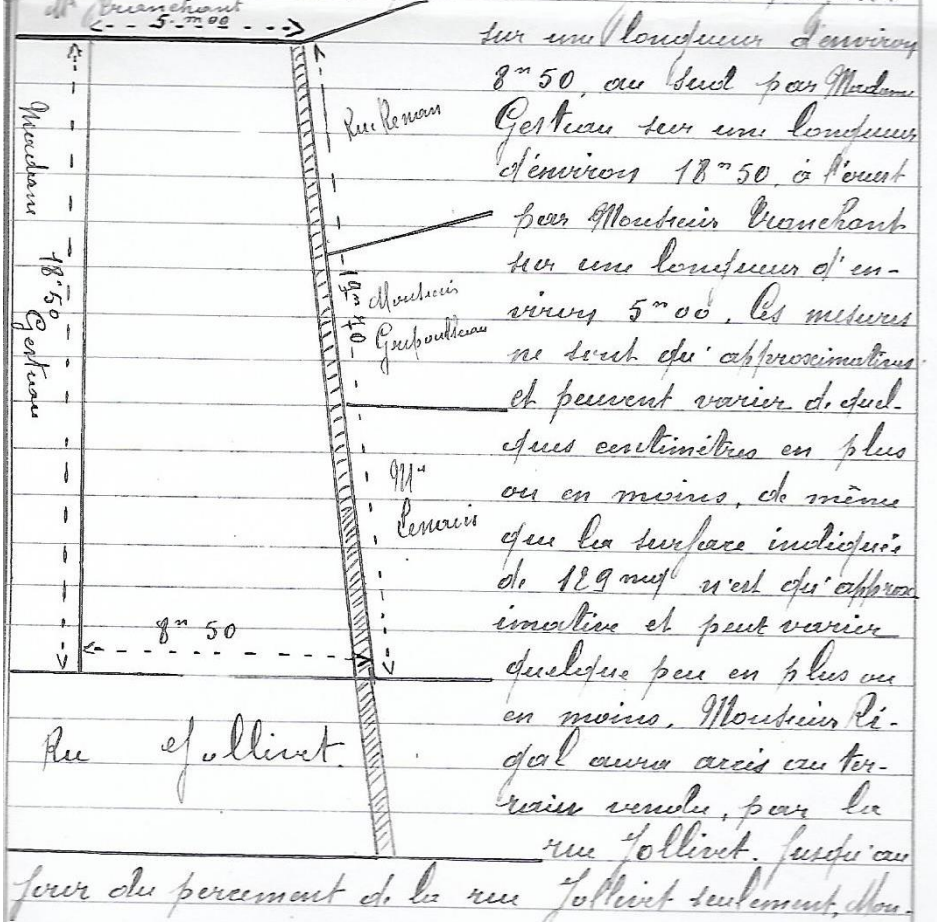 Mr Tranchant
5 m 00
Rue Renan
Madame Gestuau
18 m 50
19 m 70
Monsieur
Mr
8 m 50
Rue Jollivet.
sur une longueur d'environ
8 m 50, au sud par Madame
Gestuau sur une longueur
d'environ 18 m 50, à l'ouest
par Monsieur Tranchant
sur une longueur d'en-
viron 5 m 00. Ces mesures
ne sont qu'approximatives
et peuvent varier de quel-
ques centimètres en plus
ou en moins, de même
que la surface indiquée
de 129 mq n'est qu'approx
imative et peut varier
quelque peu en plus ou
en moins. Monsieur Ri-
gal aura accès au ter-
rain vendu, par la
rue Jollivet. Jusqu'au
jour du percement de la rue Jollivet seulement, Mon-